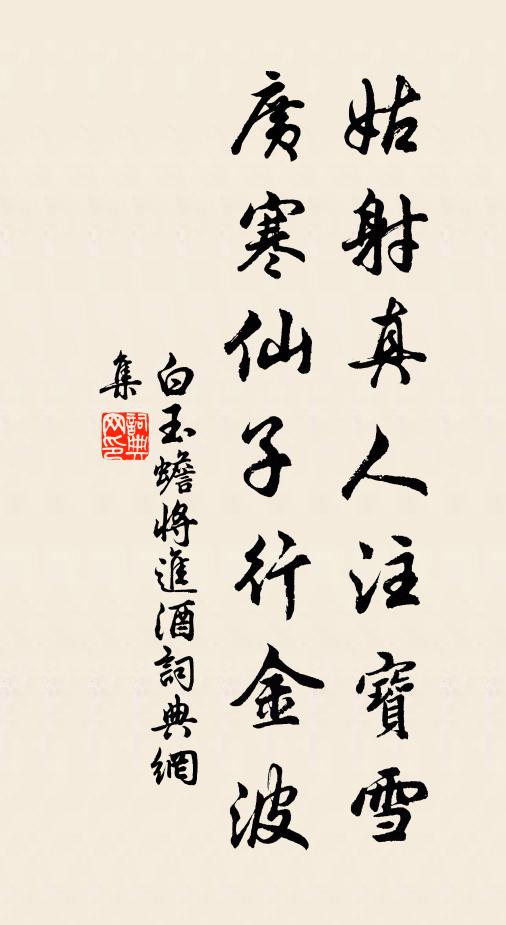 姑射真人注寶雪
廣寒仙子行金波
白玉蟾將進酒詞典網
集
詞典
网印